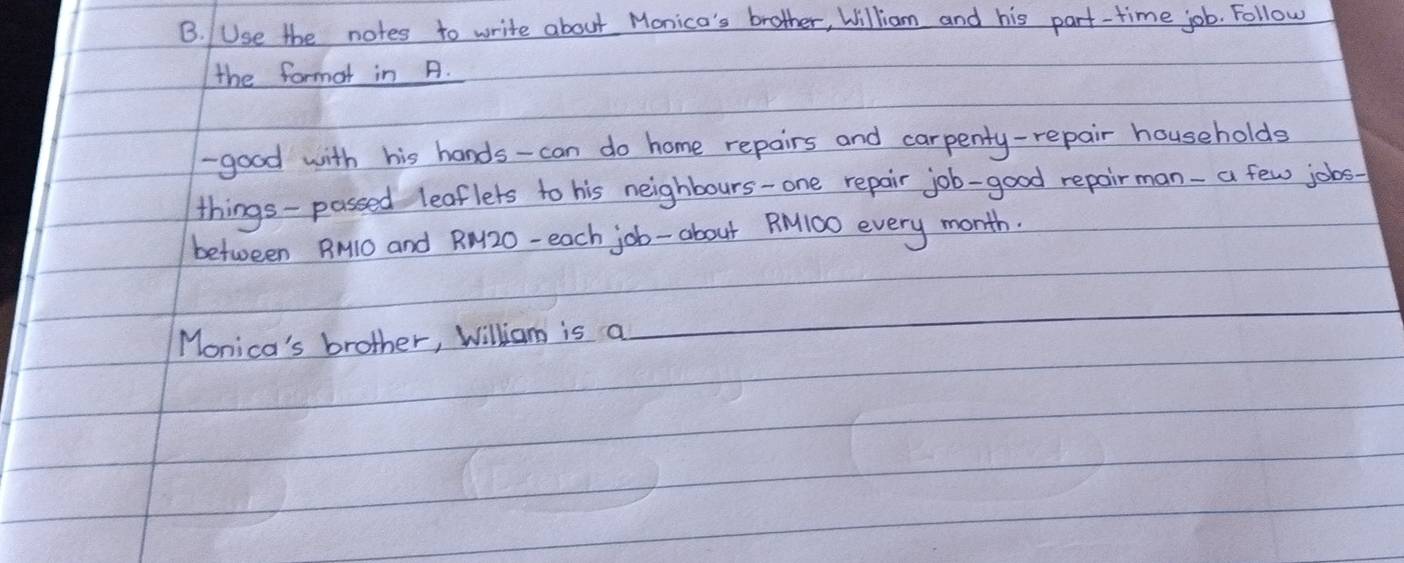 B. Use the notes to write about Monica's brother, William and his part-time job. Follow
the format in A.
-good with his hands-can do home repairs and carpenty-repair households
things-passed leaflets to his neighbours-one repair job-good repairman-a few jobs-
between RM10 and RM20-each job-about RM100 every month.
Monica's brother, William is a